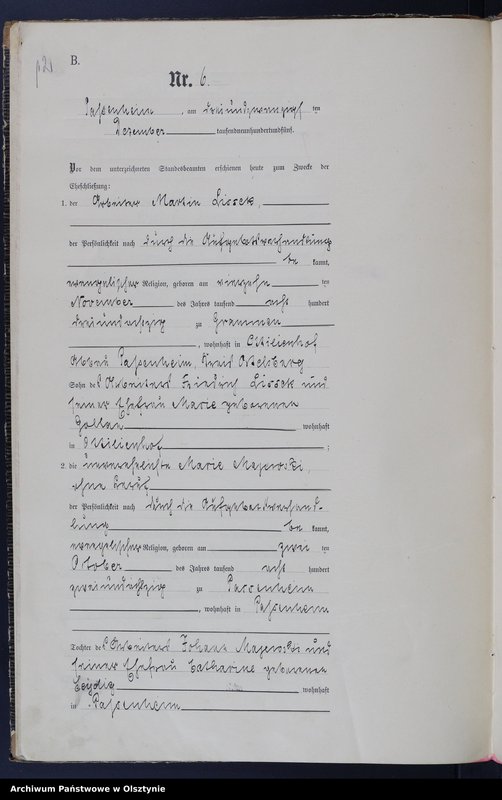 B.
Nr. 6.
Passenheim, am dreiundzwanzigsten
Dezember tausendneunhundertundfünf.
Vor dem unterzeichneten Standesbeamten erschienen heute zum Zwecke der
Eheschließung:
1. der Arbeiter Martin Lissek,
der Persönlichkeit nach durch die Aufgebotsverhandlung
be kannt,
evangelischer Religion, geboren am vierzehn ten
November des Jahres tausend acht hundert
dreiundachtzig zu Grammen
, wohnhaft in Ottilienhof
Abbau Passenheim, Kreis Ortelsburg
Sohn des Arbeiters Friedrich Lissek und
seiner Ehefrau Marie geborenen
Gollan wohnhaft
in Ottilienhof ;
2. die unverehelichte Marie Majewski,
ohne Beruf
der Persönlichkeit nach durch die Aufgebotsverhand-
lung be kannt,
evangelischer Religion, geboren am zwei ten
Oktober des Jahres tausend acht hundert
zweiundachtzig zu Passenheim
, wohnhaft in Passenheim
Tochter des Arbeiters Johann Majewski und
seiner Ehefrau Catharine geborenen
wohnhaft
in Passenheim
Archiwum Państwowe w Olsztynie